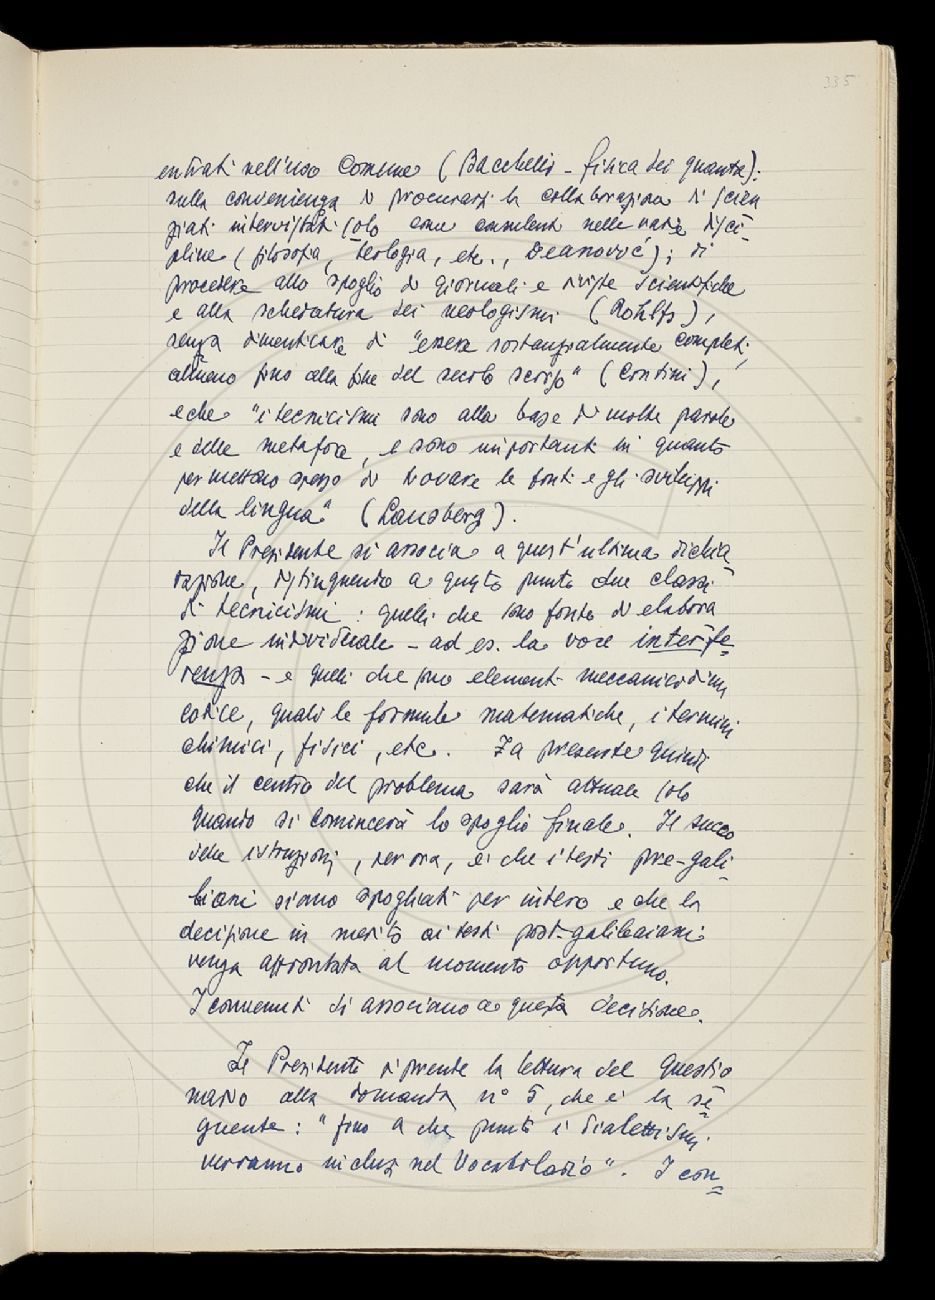 335
entrati nell'uso comune (Bacchelli - fisica dei quanta):
sulla convenienza di procurarsi la collaborazione di scien
ziati intervistati solo come consulenti nelle varie disci-
pline (filosofia, teologia, etc., Deanović); di
procedere allo spoglio di giornali e riviste scientifiche
e alla schedatura dei neologismi (Rohlfs),
senza dimenticare di "essere sostanzialmente completi,
almeno fino alla fine del secolo scorso" (Contini),
e che "i tecnicismi sono alla base di molte parole
e delle metafore, e sono importanti in quanto
permettono spesso di trovare le fonti e gli sviluppi
della lingua" (Lausberg).
Il Presidente si associa a quest'ultima dichia-
razione, distinguendo a questo punto due classi
di tecnicismi: quelli che sono fonte di elabora
zione individuale - ad es. la voce interfe-
renza - e quelli che sono elementi meccanici di un
codice, quali le formule matematiche, i termini
chimici, fisici, etc. Fa presente quindi
che il centro del problema sarà attuale solo
quando si comincerà lo spoglio finale. Il succo
delle istruzioni, per ora, è che i testi pre-gali-
leiani siano spogliati per intero e che la
decisione in merito ai testi post-galileiani
venga affrontata al momento opportuno.
I convenuti si associano a questa decisione.
Il Presidente riprende la lettura del Questio
nario alla domanda n° 5, che è la se=
guente: "fino a che punto i dialettismi
verranno inclusi nel Vocabolario". I con=